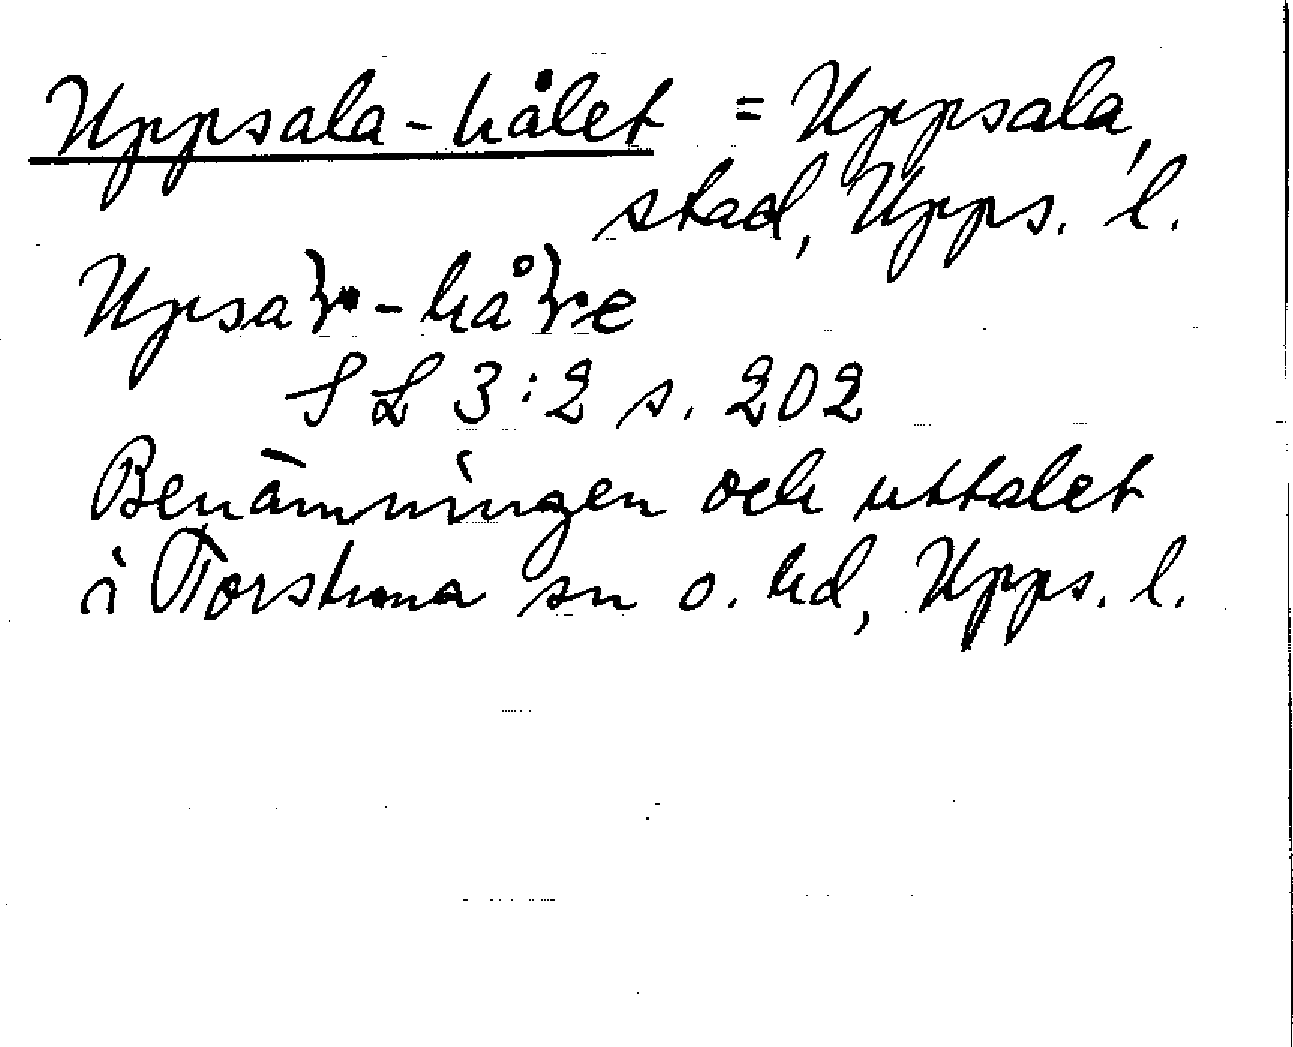 Uppsala-hålet = Uppsala,
stad, Upps. l.
SL 3:2 s. 202
Benämningen och uttalet
i Torstuna sn o. hd, Upps. l.